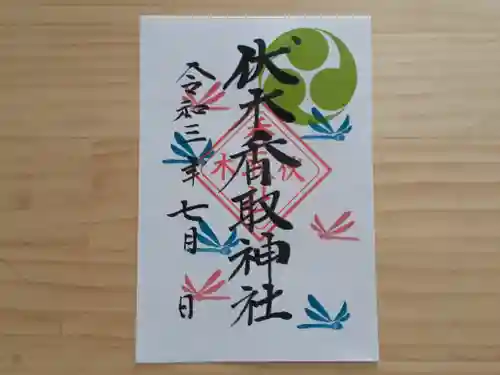 伏木香取神社
令和三年七月 日